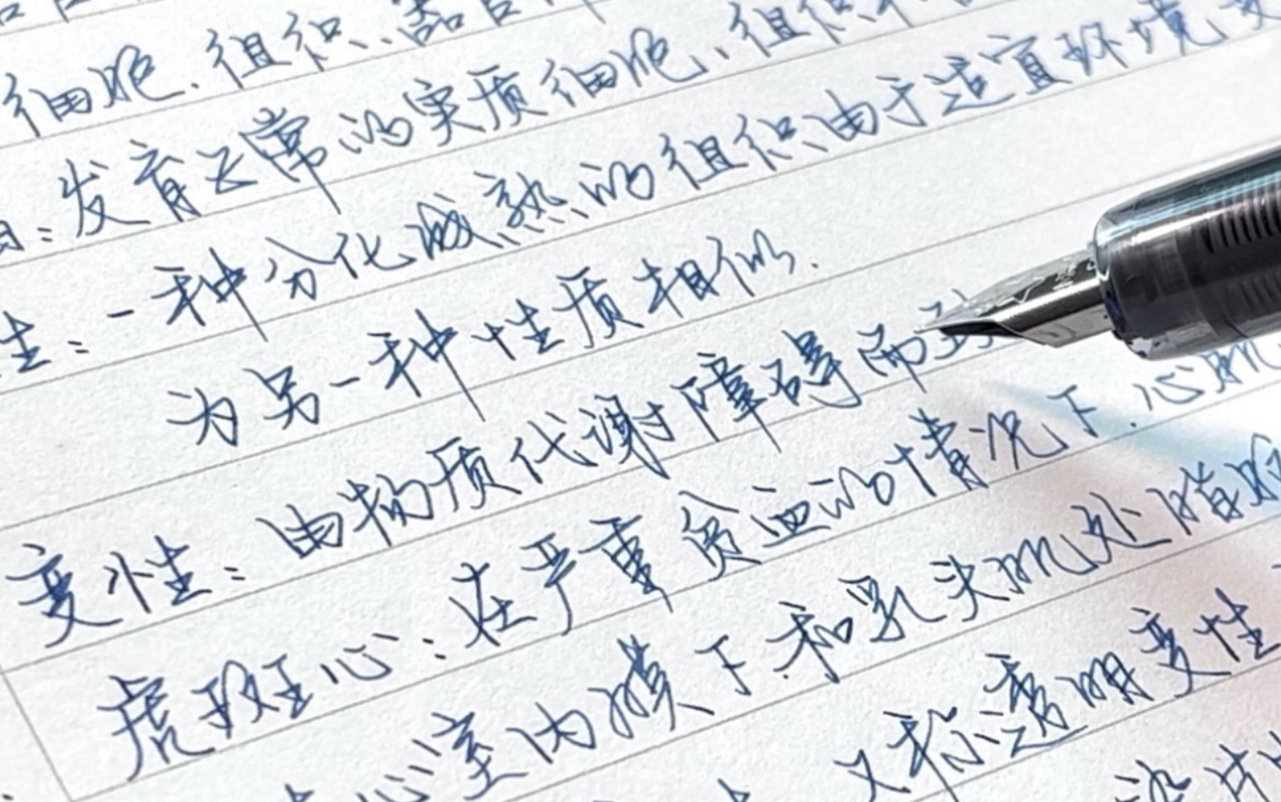 细胞.组织.器官
:发育正常的实质细胞、组织
生:一种分化成熟的组织由于适宜环境
为另一种性质相似.
变性:由物质代谢障碍而
虎斑心:在严重贫血的情况下.心肌
心室内膜下.和乳头肌处脂肪
又称透明变性